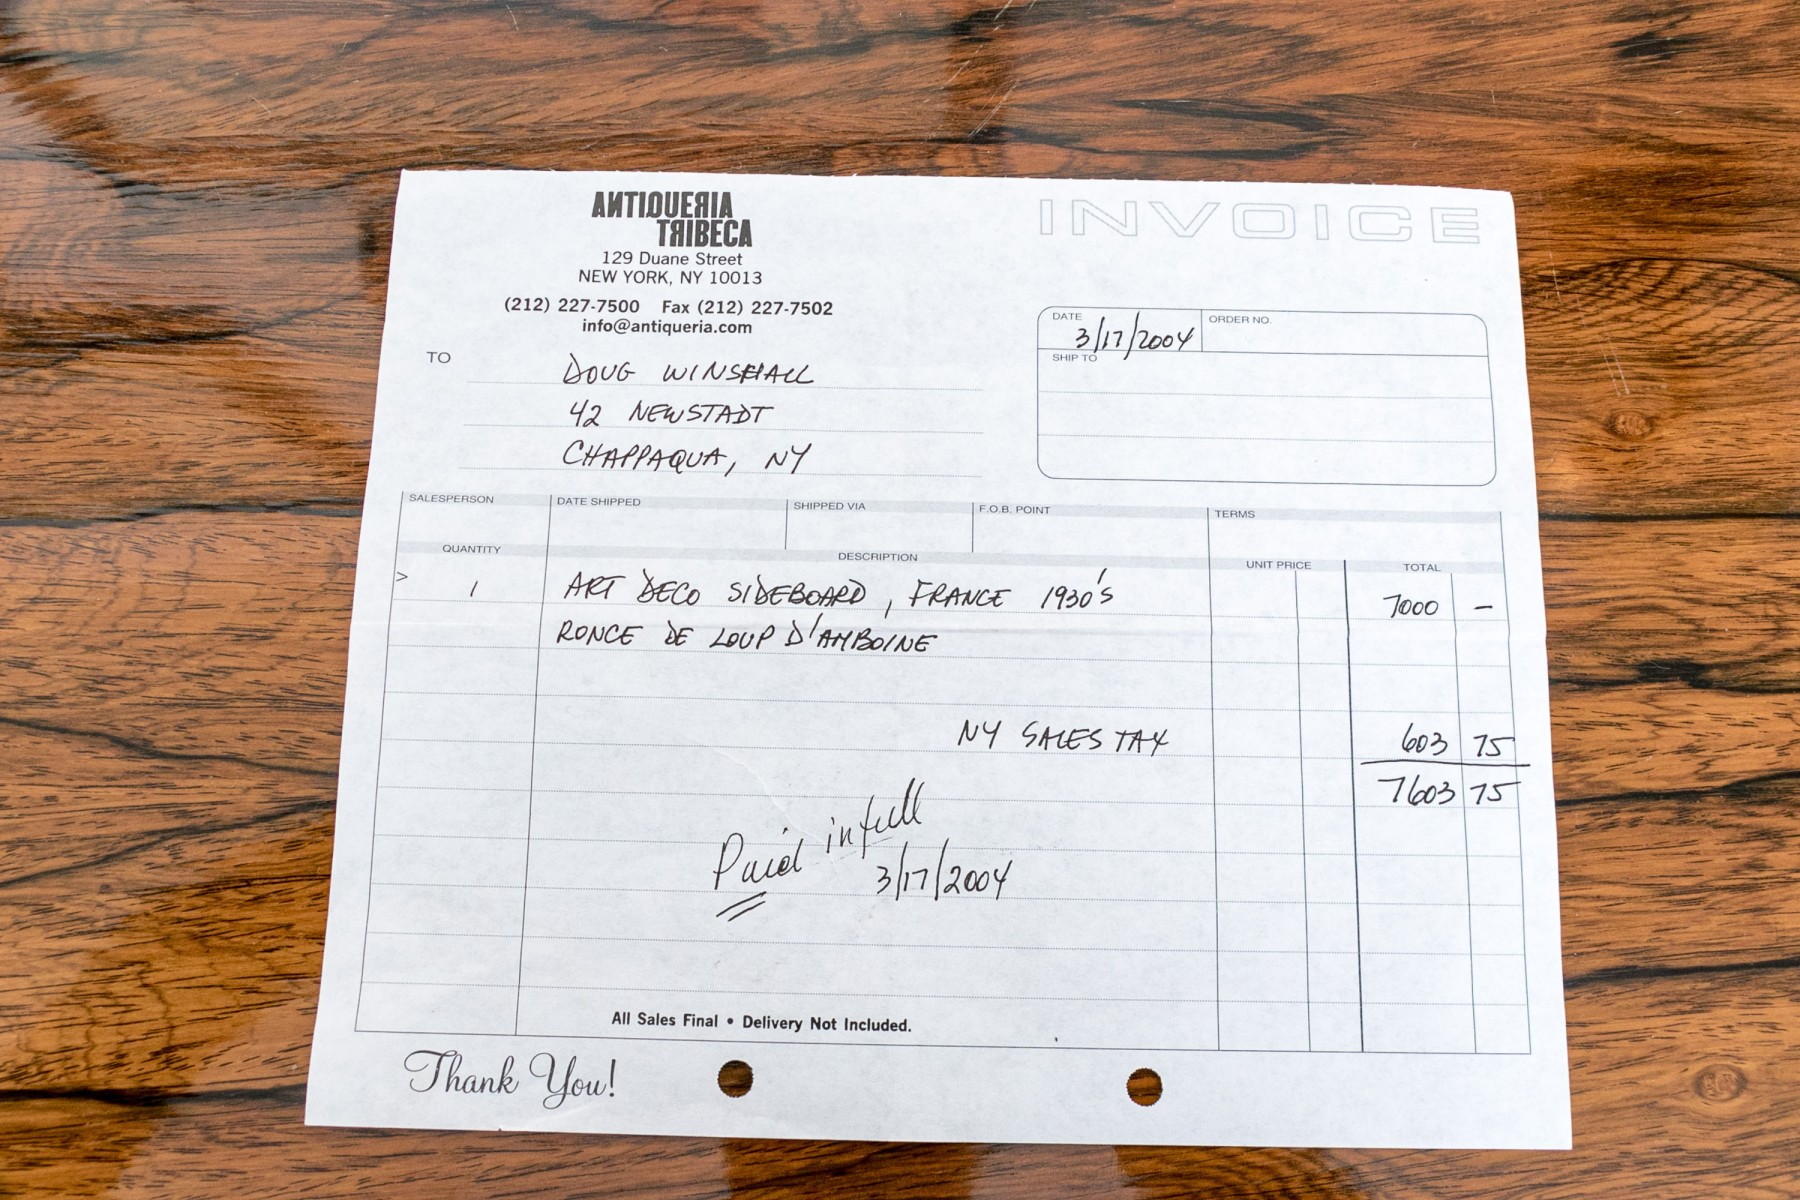 ANTIQUERIA
TRIBECA
129 Duane Street
NEW YORK, NY 10013
(212) 227-7500 Fax (212) 227-7502
info@antiqueria.com
INVOICE
DATE 3/17/2004 ORDER NO.
SHIP TO
TO DOUG WINSHALL
42 NEWSTADT
CHAPPAQUA, NY
SALESPERSON DATE SHIPPED SHIPPED VIA F.O.B. POINT TERMS
QUANTITY DESCRIPTION UNIT PRICE TOTAL
> 1 ART DECO SIDEBOARD, FRANCE 1930'S 7000 –
RONCE DE LOUP D'AMBOINE
NY SALES TAX 603 75
7603 75
Paid in full
3/17/2004
All Sales Final • Delivery Not Included.
Thank You!